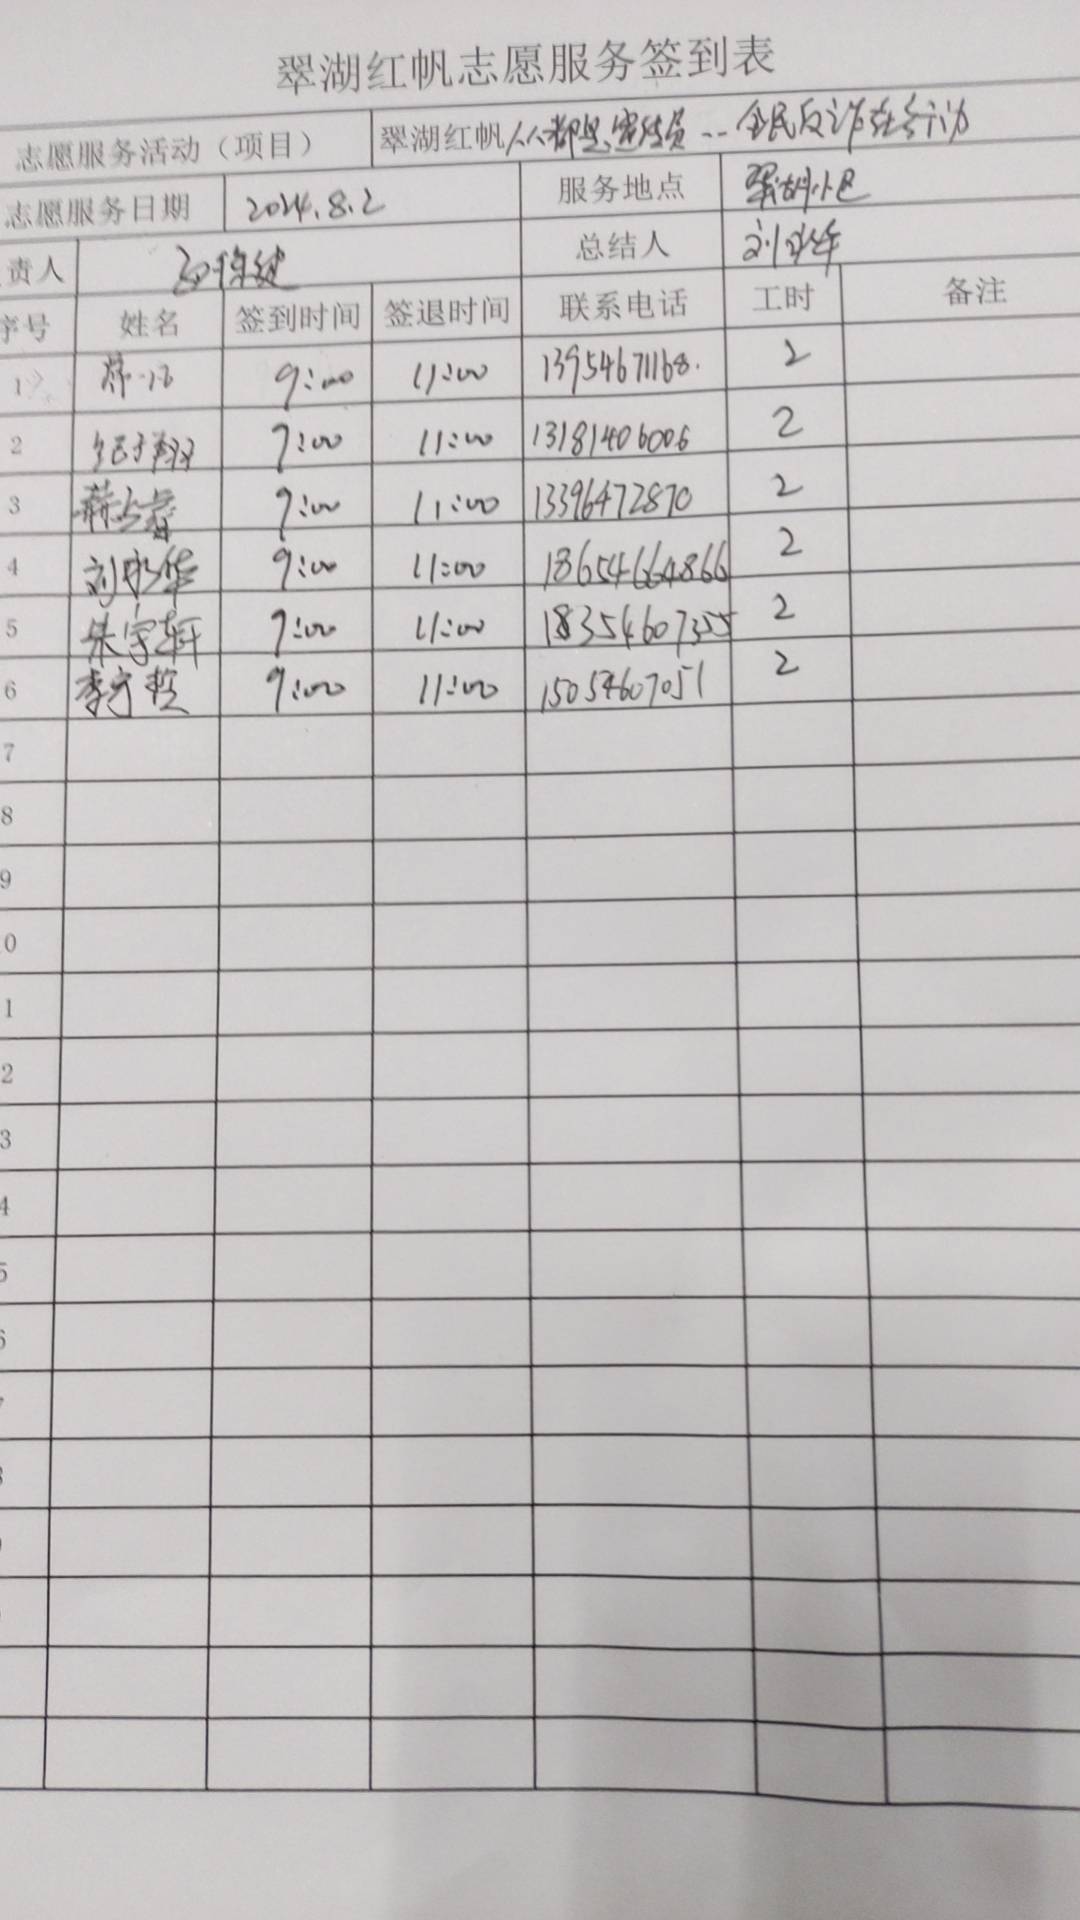 翠湖红帆志愿服务签到表
志愿服务活动（项目） 翠湖红帆人人都是宣传员--全民反诈在行动
志愿服务日期 2024.8.2 服务地点 翠湖小区
责人 总结人 刘永华
序号 姓名 签到时间 签退时间 联系电话 工时 备注
1 9:00 11:00 13954671168. 2
2 9:00 11:00 13181406006 2
3 9:00 11:00 13396472870 2
4 刘永华 9:00 11:00 18654664866 2
5 朱宇轩 9:00 11:00 18354607355 2
6 李宇哲 9:00 11:00 15054607051 2
7
8
9
0
1
2
3
4
5
6
7
8